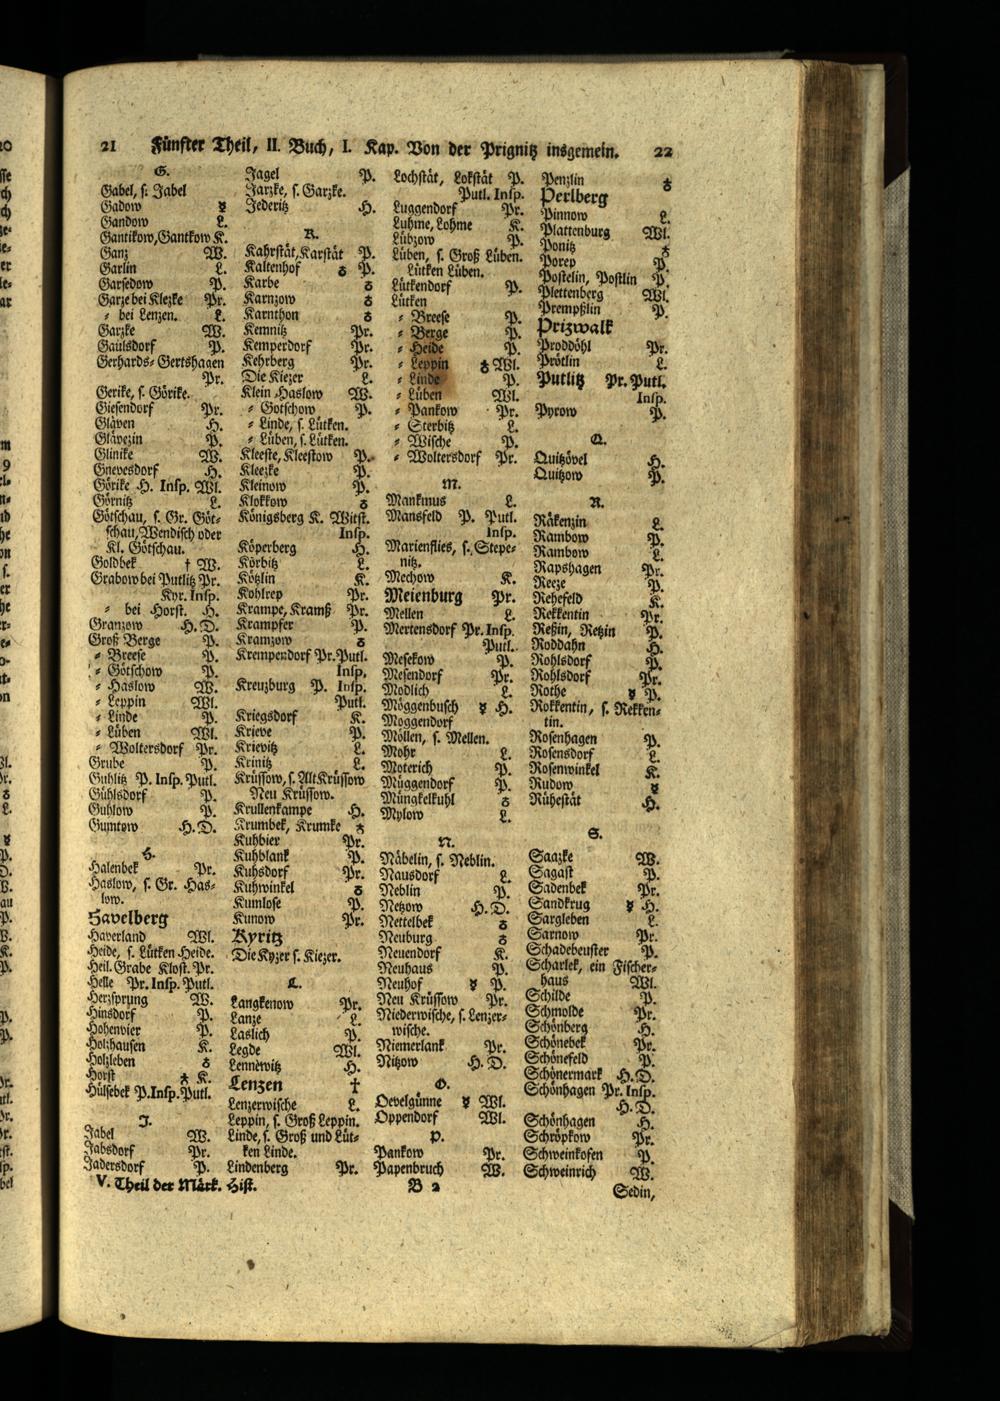 21 Fünfter Theil, II. Buch, I. Kap. Von der Prignitz insgemein. 22
G.
Gabel, s. Jabel
Gadow ☿
Gandow L.
Gantikow, Gantkow K.
Ganz W.
Garlin L.
Garsedow P.
Garze bei Klezke Pr.
⸗ bei Lenzen. L.
Garzke W.
Gaulsdorf P.
Gerhards⸗ Gertshagen
Pr.
Gerike, s. Görike.
Giesendorf Pr.
Gläven H.
Glävezin P.
Glinike W.
Gnevesdorf H.
Görike H. Insp. Wl.
Görnitz L.
Götschau, s. Gr. Göt⸗
schau, Wendisch oder
Kl. Götschau.
Goldbek † W.
Grabow bei Putlitz Pr.
Kyr. Insp.
⸗ bei Horst. H.
Granzow H. D.
Groß Berge P.
⸗ Breese P.
⸗ Götschow P.
⸗ Haslow W.
⸗ Leppin Wl.
⸗ Linde P.
⸗ Lüben Wl.
⸗ Woltersdorf Pr.
Grube P.
Guhlitz P. Insp. Putl.
Gühlsdorf P.
Guhlow P.
Gumtow H. D.
H.
Halenbek Pr.
Haslow, s. Gr. Has⸗
low.
Havelberg
Haverland Wl.
Heide, s. Lütken Heide.
Heil. Grabe Klost. Pr.
Helle Pr. Insp. Putl.
Herzsprung W.
Hinsdorf P.
Hohenvier P.
Holzhausen K.
Holzleben ♁
Horst ♁ K.
Hülsebek P. Insp. Putl.
J.
Jabel W.
Jabsdorf Pr.
Jadersdorf P.
Jagel P.
Jarzke, s. Garzke.
Jederitz H.
K.
Kahrstät, Karstät P.
Kaltenhof ♁ P.
Karbe ♁
Karnzow ♁
Karnthon ♁
Kemnitz Pr.
Kemperdorf Pr.
Kehrberg Pr.
Die Kiezer L.
Klein Haslow W.
⸗ Gotschow P.
⸗ Linde, s. Lütken.
⸗ Lüben, s. Lütken.
Kleeste, Kleestow P.
Kleezke P.
Kleinow P.
Klokkow ♁
Königsberg K. Witst.
Insp.
Köperberg H.
Körbitz L.
Kötzlin K.
Kohlrep Pr.
Krampe, Kramß Pr.
Krampfer P.
Kramzow ♁
Krempendorf Pr. Putl.
Insp.
Kreuzburg P. Insp.
Putl.
Kriegsdorf K.
Krieve P.
Krievitz L.
Krinitz L.
Krüssow, s. Alt Krüssow
Neu Krüssow.
Krullenkampe H.
Krumbek, Krumke ♁
Kuhbier Pr.
Kuhblank P.
Kuhsdorf Pr.
Kuhwinkel ♁
Kumlose P.
Kunow Pr.
Kyritz
Die Kyzer s. Kiezer.
L.
Langkenow Pr.
Lanze L.
Laslich P.
Legde Wl.
Lennewitz H.
Lenzen †
Lenzerwische L.
Leppin, s. Groß Leppin.
Linde, s. Groß und Lüt⸗
ken Linde.
Lindenberg Pr.
Lochstät, Lokstät P.
Putl. Insp.
Luggendorf Pr.
Luhme, Lohme K.
Lübzow P.
Lüben, s. Groß Lüben.
Lütken Lüben.
Lütkendorf P.
Lütken
⸗ Breese P.
⸗ Berge P.
⸗ Heide P.
⸗ Leppin ♁ Wl.
⸗ Linde P.
⸗ Lüben Wl.
⸗ Pankow Pr.
⸗ Sterbitz L.
⸗ Wische P.
⸗ Woltersdorf Pr.
M.
Mankmus L.
Mansfeld P. Putl.
Insp.
Marienflies, s. Stepe⸗
nitz.
Mechow K.
Meienburg Pr.
Mellen L.
Mertensdorf Pr. Insp.
Putl.
Mesekow P.
Mesendorf Pr.
Modlich L.
Möggenbusch ☿ H.
Moggendorf
Möllen, s. Mellen.
Mohr L.
Moterich P.
Müggendorf P.
Müngkelkuhl ♁
Mylow L.
N.
Näbelin, s. Neblin.
Nausdorf L.
Neblin P.
Netzow H. D.
Nettelbek ♁
Neuburg ♁
Neuendorf K.
Neuhaus P.
Neuhof ☿ P.
Neu Krüssow Pr.
Niederwische, s. Lenzer⸗
wische.
Niemerlank Pr.
Nitzow H. D.
O.
Oevelgünne ☿ Wl.
Oppendorf Wl.
P.
Pankow Pr.
Papenbruch W.
Penzlin ♁
Perlberg
Pinnow L.
Plattenburg Wl.
Ponitz ♁
Porep P.
Postelin, Postlin P.
Plettenberg Wl.
Prempßlin P.
Prizwalk
Proddöhl Pr.
Prötlin L.
Putlitz Pr. Putl.
Insp.
Pyrow P.
Q.
Quitzövel H.
Quitzow P.
R.
Räkenzin L.
Rambow P.
Rambow L.
Rapshagen Pr.
Reeze P.
Rehefeld K.
Rekkentin Pr.
Reßin, Retzin P.
Roddahn H.
Rohlsdorf P.
Rohlsdorf Pr.
Rothe ☿ P.
Rokkentin, s. Rekken⸗
tin.
Rosenhagen P.
Rosensdorf L.
Rosenwinkel K.
Rudow ☿
Rühestät H.
S.
Saazke W.
Sagast P.
Sadenbek Pr.
Sandkrug ☿ H.
Sargleben L.
Sarnow Pr.
Schadebeuster P.
Scharlek, ein Fischer⸗
haus Wl.
Schilde P.
Schmolde Pr.
Schönberg H.
Schönebek Pr.
Schönefeld P.
Schönermark H. D.
Schönhagen Pr. Insp.
H. D.
Schönhagen H.
Schröpkow Pr.
Schweinkofen P.
Schweinrich W.
V. Theil der Märk. Hist. B 2 Sedin,